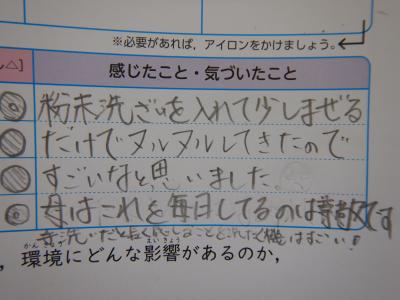 ※必要があれば，アイロンをかけましょう。
△]
感じたこと・気づいたこと
粉末洗ざいを入れて少しまぜる
だけでヌルヌルしてきたので
すごいなと思いました。
母はこれを毎日してるのは尊敬です
手洗いだと長く感じることとせんたく機はすごい!
，環境にどんな影響があるのか，
かんきょう
えいきょう